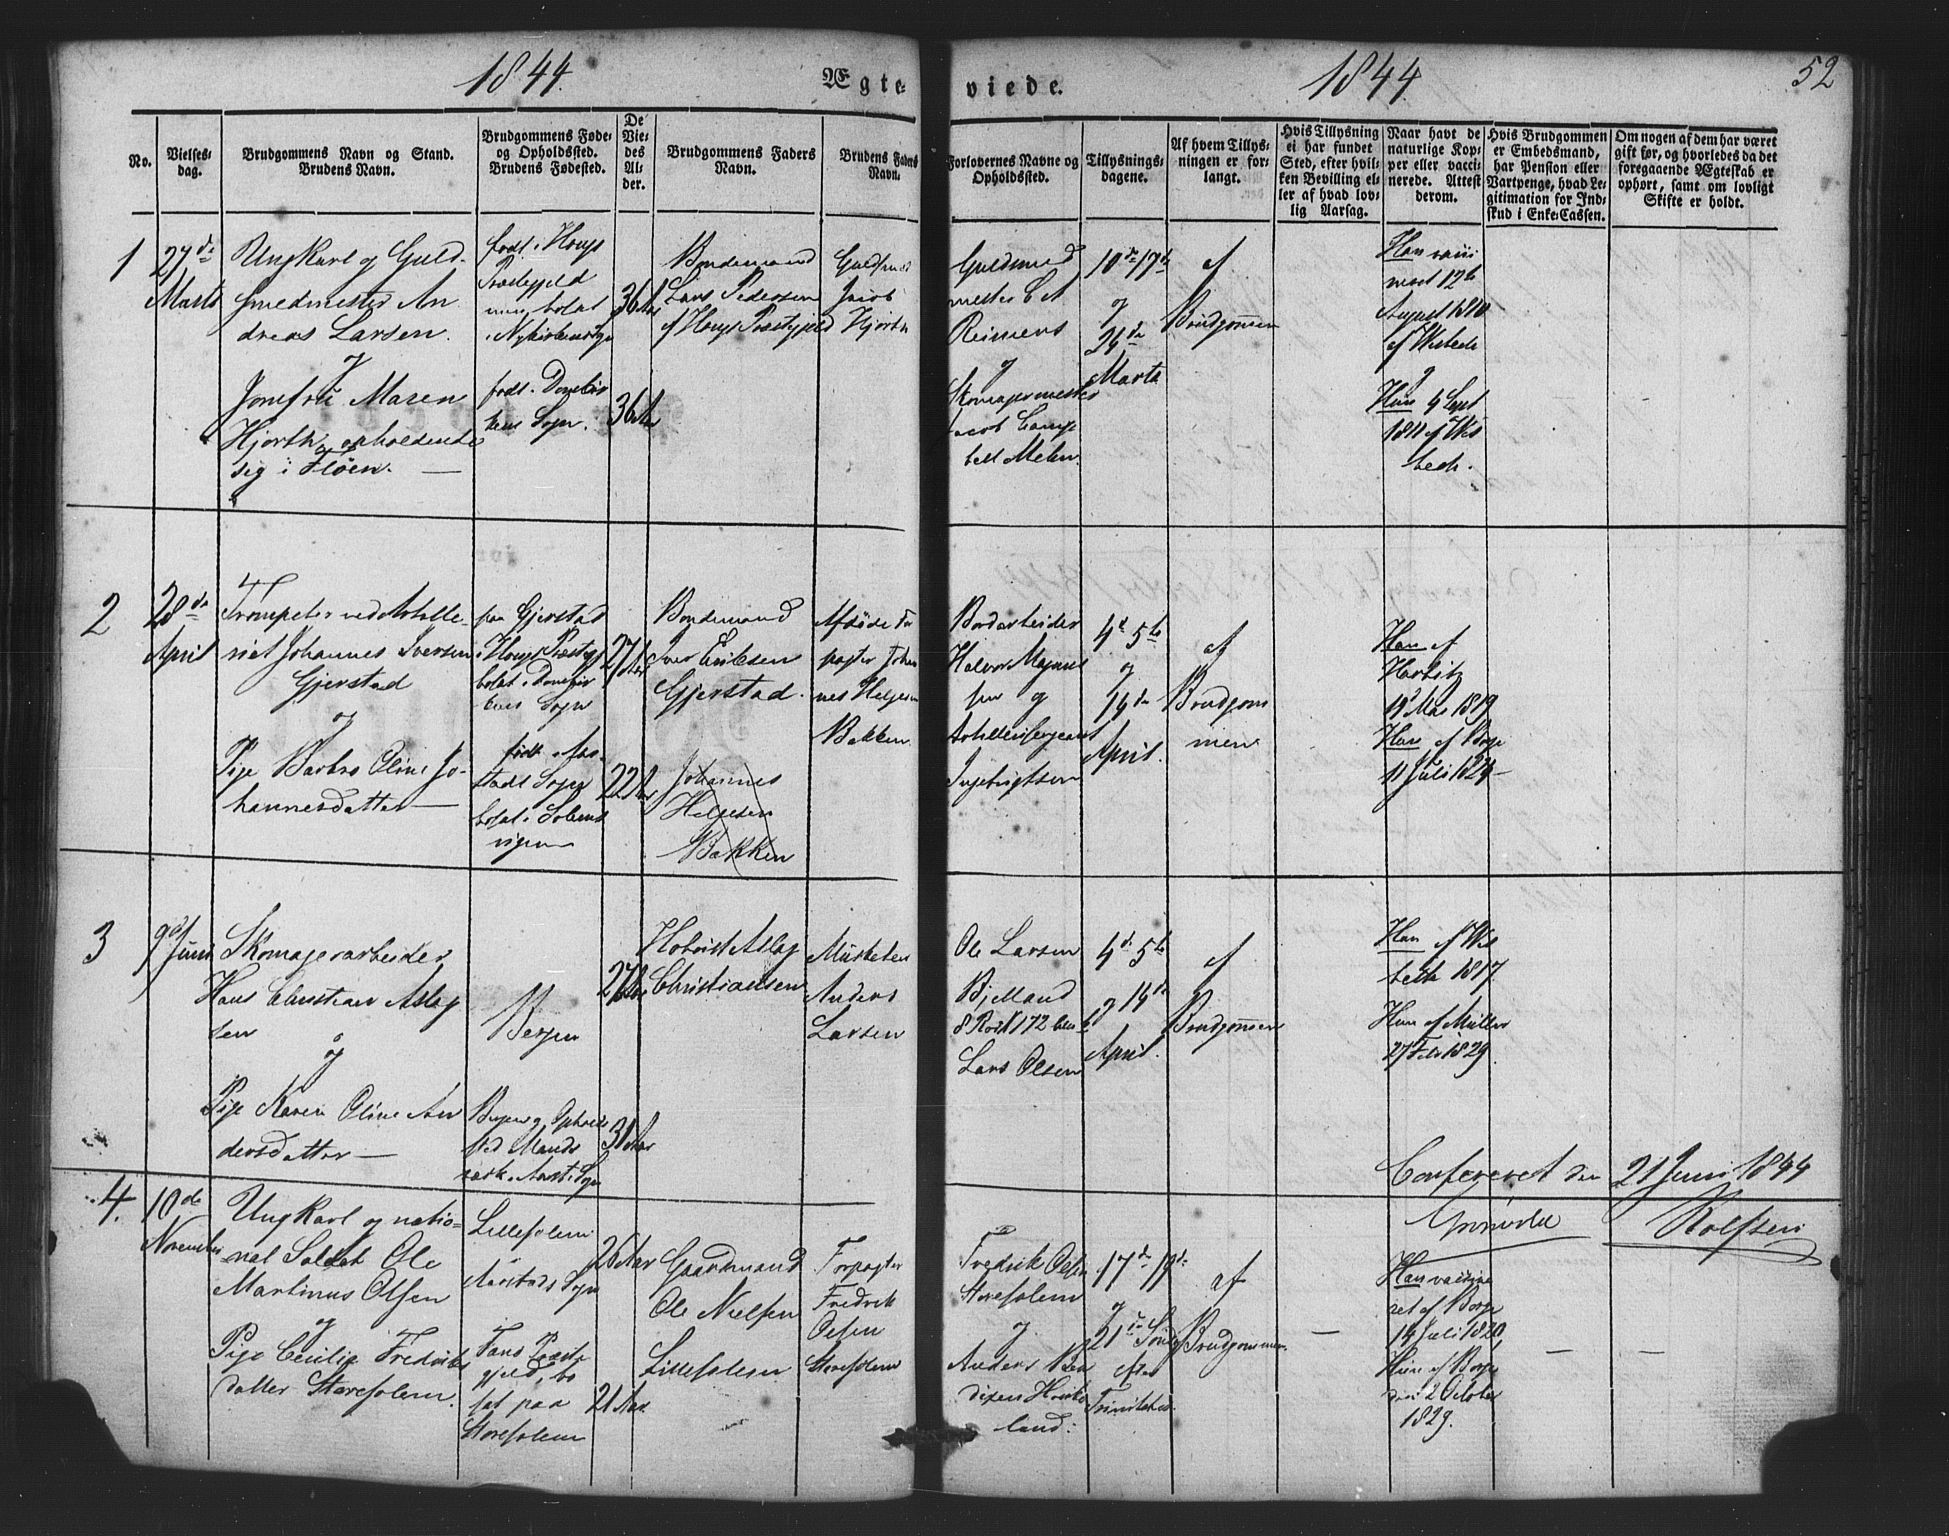 1844.
Ægte-
viede.
1844.
52
No.
Vielses-
dag.
Brudgommens Navn og Stand.
Brudens Navn.
Brudgommens Føde-
og Opholdssted.
Brudens Fødested.
De
Vie-
des
Al-
der.
Brudgommens Faders
Navn.
Brudens Faders
Navn.
Forlovernes Navne og
Opholdssted.
Tillysnings-
dagene.
Af hvem Tillys-
ningen er for-
langt.
Hvis Tillysning
ei har fundet
Sted, efter hvil-
ken Bevilling el-
ler af hvad lov-
lig Aarsag.
Naar havt de
naturlige Kop-
per eller vacci-
nerede. Attest
derom.
Hvis Brudgommen
er Embedsmand,
har Pension eller
Vartpenge, hvad Le-
gitimation for Ind-
skud i Enke-Cassen.
Om nogen af dem har været
gift før, og hvorledes da det
foregaaende Ægteskab er
ophørt, samt om lovligt
Skifte er holdt.
1
27de
Marts
Ungkarl og Guld-
smedmester An
dreas Larsen.
og
Jomfru Maren
Hjorth, opholdende
sig i Fløen.
født i Hougs
Præstegjeld
nu bolat
i Nykirkens Sogn
født i Domkir
kens Sogn.
36 Aar
36 Aar
Bondemand
Lars Pedersen
af Hougs Præstgjeld
Guldsmed
Jacob
Hjorth
Guldsmed
mester C A
Reimers
og
Skomagermester
Jacob Camp
bell Melen.
10de 17de
og
24de
Marts
af
Brudgommen
Han vacci
neret 12te
August 1810
af Wisbech
og
Hun 4 Sept
1811 af Wis
bech.
2
28de
April
Trompeter ved Artille-
riet Johannes Iversen
Gjerstad
og
Pige Barbro Oline Jo-
hannesdatter
paa Gjerstad
i Hougs Præstgj
bolat i Domkir
kens Sogn
født i Aar
stads Sogn
bolat i Solems
vigen
27 Aar
22 Aar
Bondemand
Iver Eriksen
Gjerstad.
Johannes
Helgesen
Bakken
Afdøde For
pagter Johan
nes Helgesen
Bakken
Bordarbeider
Halvor Magnus
sen og
Artillerisergeant
Ingebrigtsen
4de 5te
og
14de
April.
af
Brudgom
men
Han af
Harbitz
19 Mai 1819
Hun af Borge
11 Juli 1824
3
9de Juni
Skomagerarbeider
Hans Christian Aslag
sen
og
Pige Karen Oline An
dersdatter
Bergen
Bergen og Ophold
sted Mands
værk i Aarst. Sogn
27 Aar
31 Aar
Hoboist Aslag
Christiansen
Musketeer
Anders
Larsen
Ole Larsen
Bjelland
8 Rode N 172 boende
Lars Olsen
4de 5te
og 14de
April.
af
Brudgommen
Han af Wis
bech 1817
Hun af Müller
27 Feb 1829.
Confereret den 21 Juni 1844
Rolfsen
4.
10de
November
Ungkarl og natio-
nal Soldat Ole
Martinus Olsen
og
Pige Cecilie Fredriks
datter Storesolem.
Lillesolem
Aarstads Sogn
Fans Præste
gjeld, bo
sat paa
Storesolem
26 Aar
21 Aar
Gaardmand
Ole Nielsen
Lillesolem
Forpagter
Fredrik
Olsen
Storesolem
Fredrik Olsen
Storesolem
og
Anders Ben
dixen Houke
land.
17de 19de
og
21de Sønd
efter
Trinitatis.
af
Brudgommen.
Han vaccine
ret af Borge
14 Juli 1820,
Hun af Borge
den 2 October
1829.